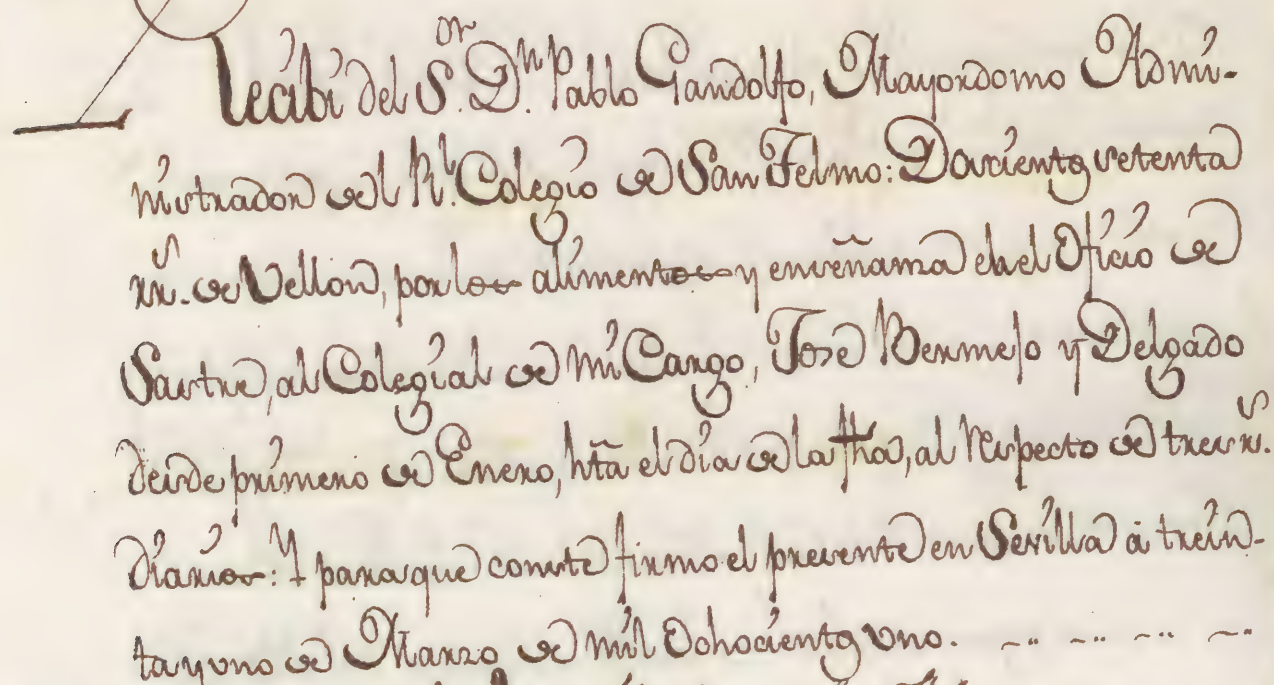 Recibi del S.or D.n Pablo Gandolfo, Mayordomo Admi-
nistrador del Rl. Colegio de San Telmo: Doscientos setenta
rs. de Vellon, por los alimentos y enseñanza del Oficio de
Sastre, al Colegial de mi Cargo, José Bermejo y Delgado
desde primero de Enero, hta el dia de la fha, al respecto de tres rs.
diarios: Y para que conste firmo el presente en Sevilla á trein-
ta y uno de Marzo de mil Ochocientos uno.